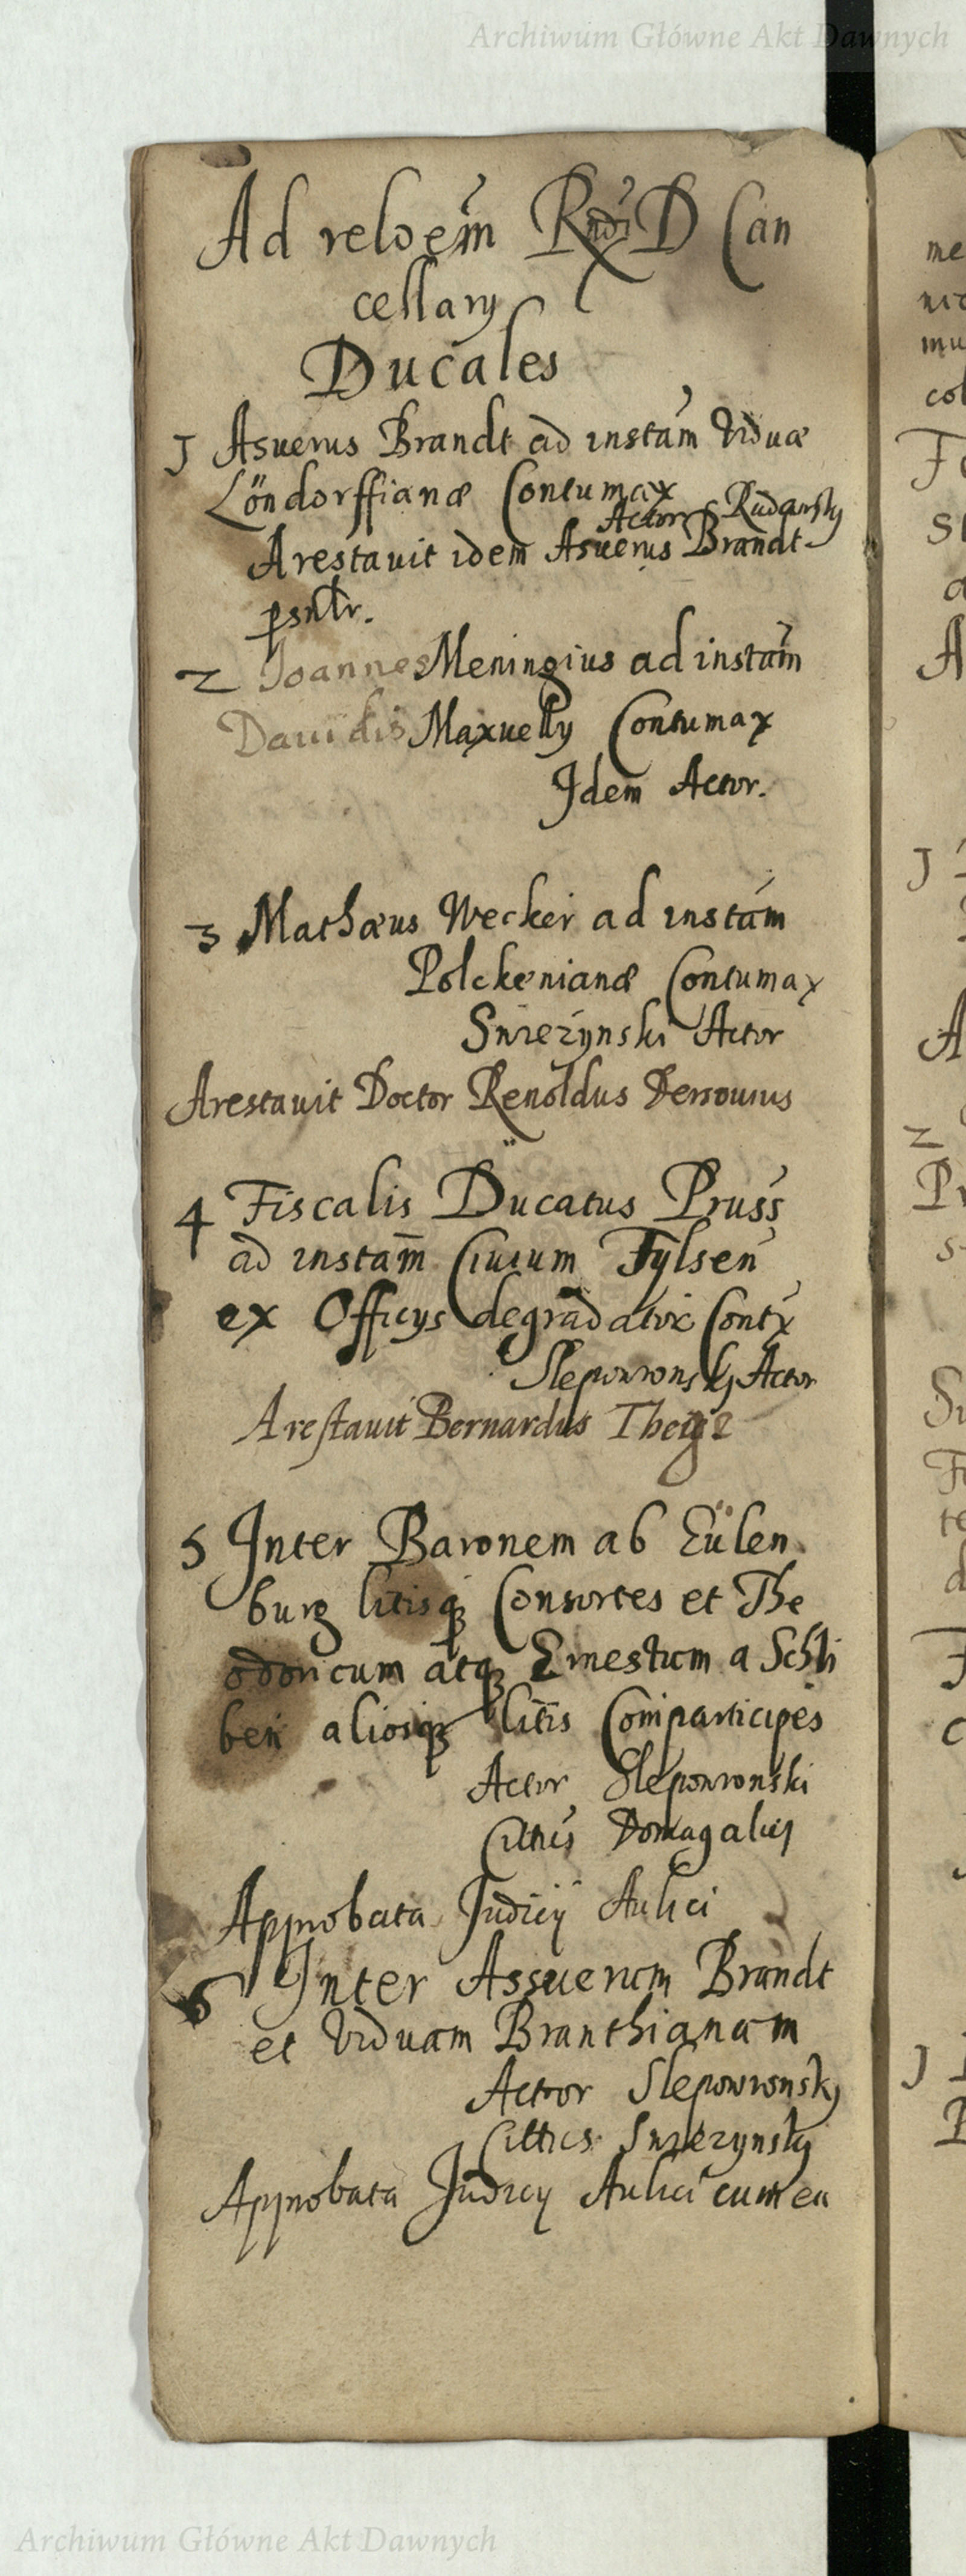 Archiwum Główne Akt Dawnych
Ad reloem Rndi D Can
cellary
Ducales
1 Asuerus Brandt ad instam Viduæ
Löndorffianæ Contumax
Actor Rudansky
Arestauit idem Asuerus Brandt
psntr.
2 Joannes Meningius ad instam
Dauidis Maxuelly Contumax
Idem Actor.
3 Mathæus Wecker ad instam
Polckenianæ Contumax
Swiezynski Actor
Arestauit Doctor Renoldus
4 Fiscalis Ducatus Pruss
ad instam Ciuium Tylsen
ex Officys degradator Contx
Slepowronsky Actor
Arestauit Bernardus
5 Inter Baronem ab Eülen
burg litisq Consortes et The
odoricum atq Ernestum a Schli
ben aliosq litis Comparticipes
Actor Slepowronski
Cittus Domagalicz
Approbata Judicij Aulici
6 Inter Assuerum Brandt
et Viduam Branthianam
Actor Slepowronsky
Cittus Swiezynsky
Approbata Judicij Aulici cum ea
Archiwum Główne Akt Dawnych